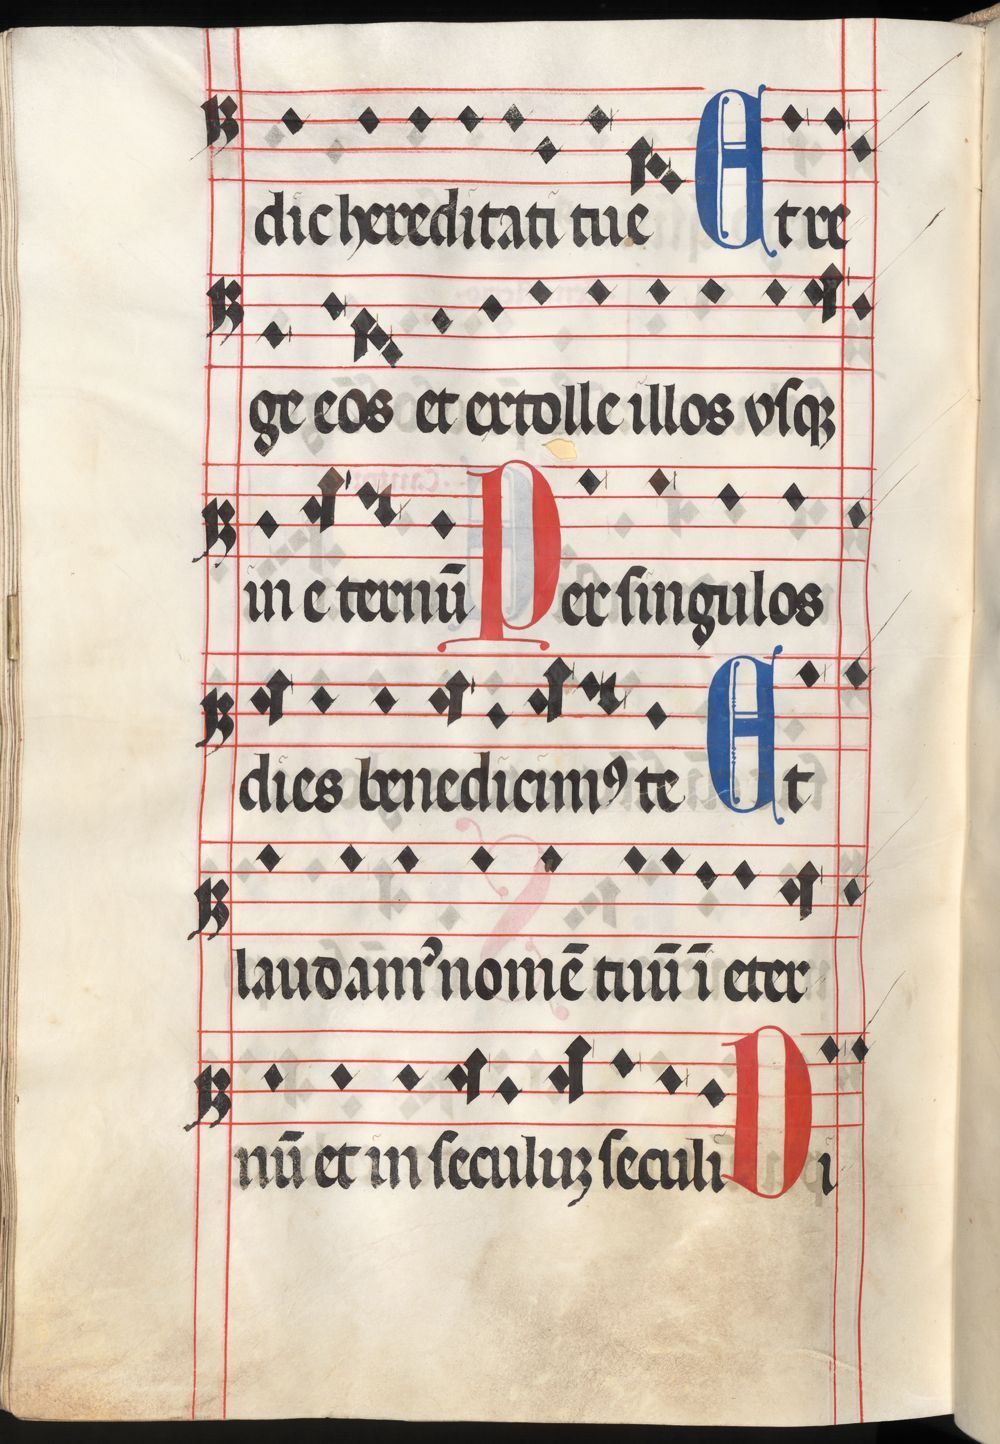 dic hereditati tue Et re
ge eos et extolle illos vsqꝫ
in e ternū Per singulos
dies benedicimꝰ te Et
laudamꝰ nomē tuū ī eter
nū et in seculuꝫ seculi Di